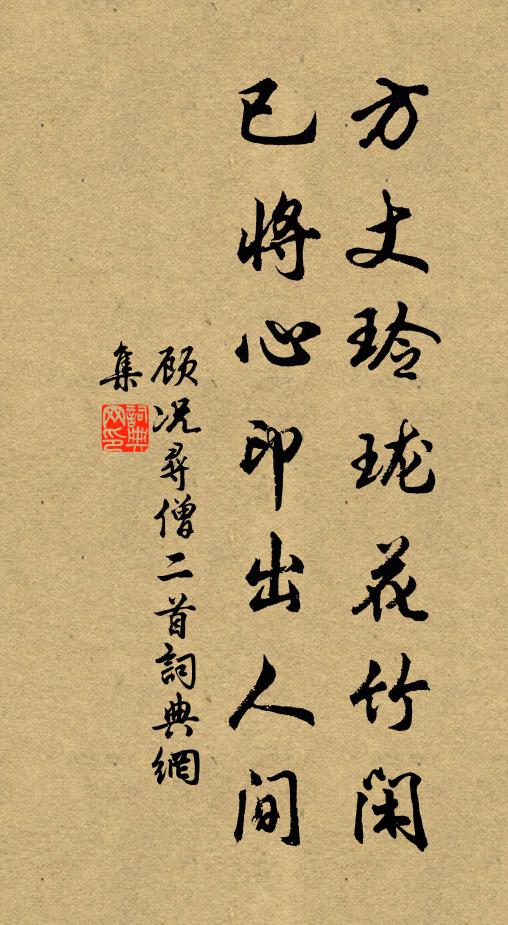 方丈玲珑花竹闲
已将心印出人间
顾况寻僧二首詞典網
集
詞典网印